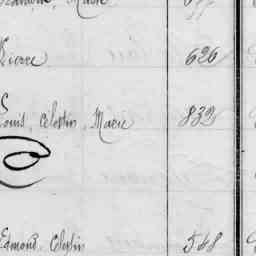 Marie
Pierre 626
Louis, Célestin, Marie 832
Edmond, Célestin 548